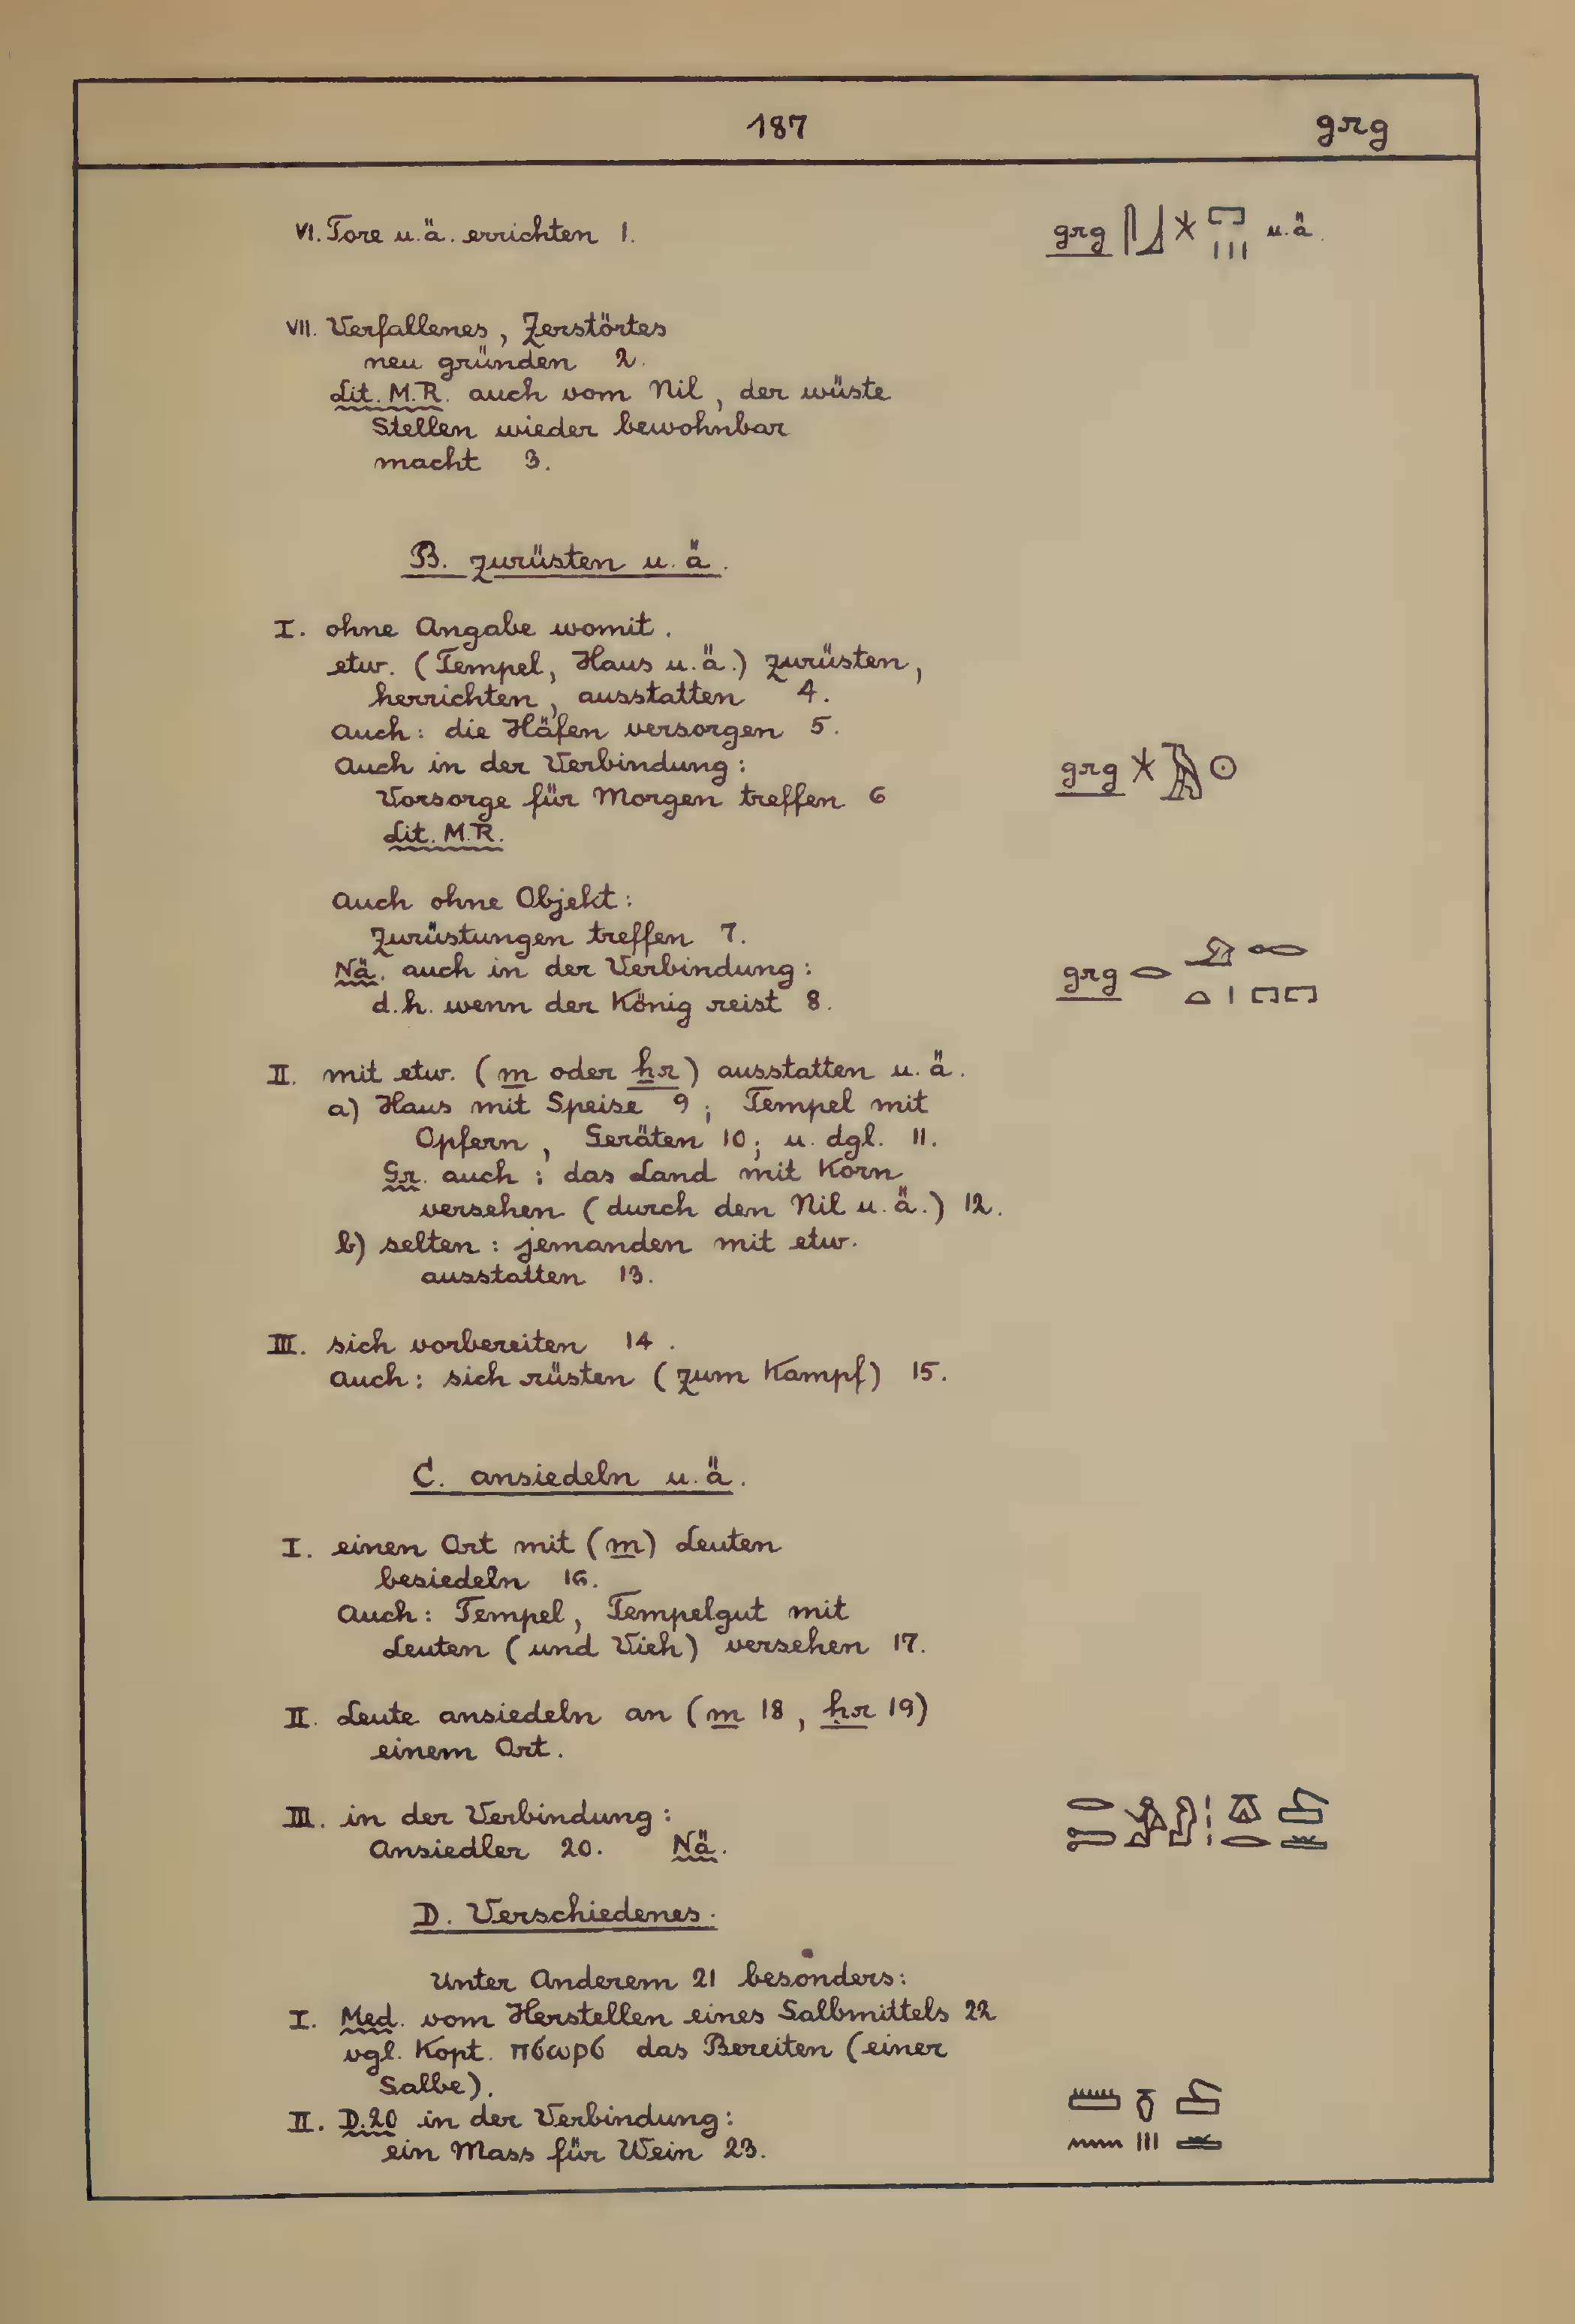 187 grg
VI. Tore u.ä. errichten 1. grg 𓋴𓃀𓇼𓉐𓏪 u.ä.
VII. Verfallenes, Zerstörtes
neu gründen 2.
Lit. M.R. auch vom Nil, der wüste
Stellen wieder bewohnbar
macht 3.
B. zurüsten u.ä.
I. ohne Angabe womit.
etw. (Tempel, Haus u.ä.) zurüsten,
herrichten, ausstatten 4.
Auch: die Häfen versorgen 5.
Auch in der Verbindung: grg 𓇼𓅓𓇳
Vorsorge für Morgen treffen 6
Lit. M.R.
Auch ohne Objekt:
Zurüstungen treffen 7.
Nä. auch in der Verbindung: grg 𓂋
d.h. wenn der König reist 8.
II. mit etw. (m oder ẖr) ausstatten u.ä.
a) Haus mit Speise 9; Tempel mit
Opfern, Geräten 10; u. dgl. 11.
Gr. auch: das Land mit Korn
versehen (durch den Nil u.ä.) 12.
b) selten: jemanden mit etw.
ausstatten 13.
III. sich vorbereiten 14.
Auch: sich rüsten (zum Kampf) 15.
C. ansiedeln u.ä.
I. einen Ort mit (m) Leuten
besiedeln 16.
Auch: Tempel, Tempelgut mit
Leuten (und Vieh) versehen 17.
II. Leute ansiedeln an (m 18, ḥr 19)
einem Ort.
III. in der Verbindung:
Ansiedler 20. Nä.
D. Verschiedenes.
Unter Anderem 21 besonders:
I. Med. vom Herstellen eines Salbmittels 22
vgl. Kopt. ⲡϭⲱⲣϭ das Bereiten (einer
Salbe).
II. D.20 in der Verbindung: 𓏠𓈖𓏌𓏪
ein Mass für Wein 23.